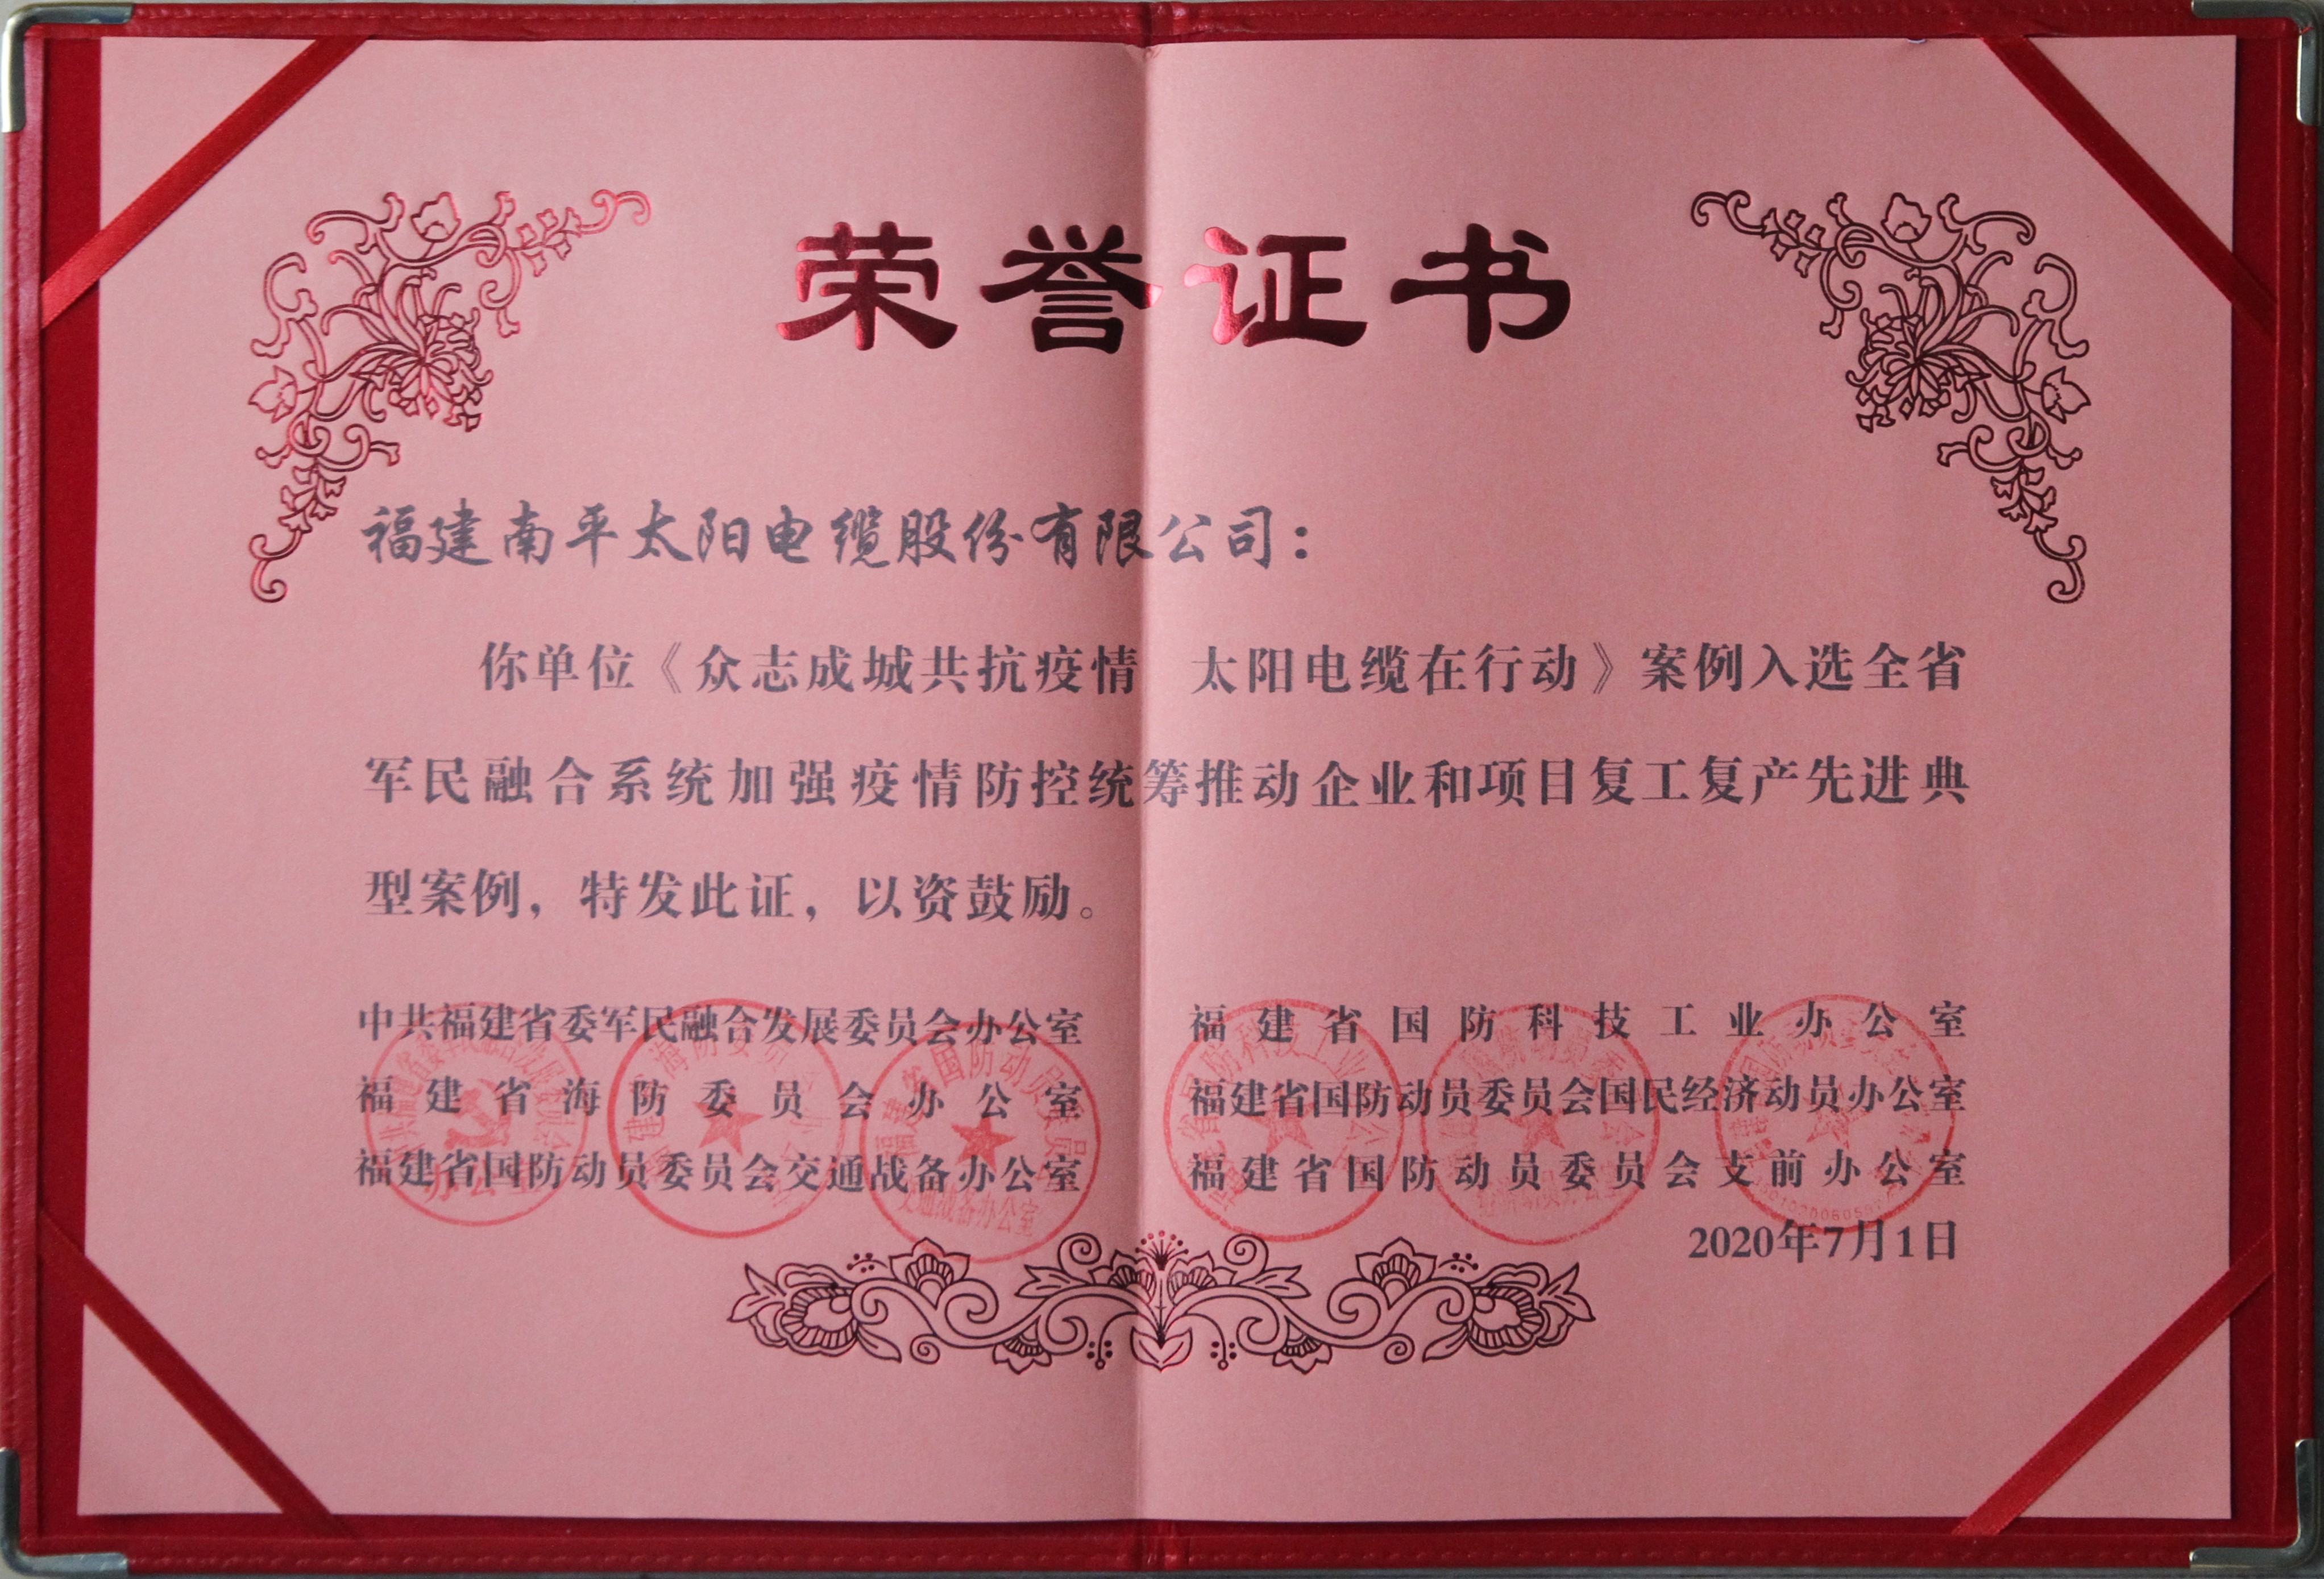 荣誉证书
福建南平太阳电缆股份有限公司：
你单位《众志成城共抗疫情 太阳电缆在行动》案例入选全省
军民融合系统加强疫情防控统筹推动企业和项目复工复产先进典
型案例，特发此证，以资鼓励。
中共福建省委军民融合发展委员会办公室
福建省海防委员会办公室
福建省国防动员委员会交通战备办公室
福建省国防科技工业办公室
福建省国防动员委员会国民经济动员办公室
福建省国防动员委员会支前办公室
2020年7月1日